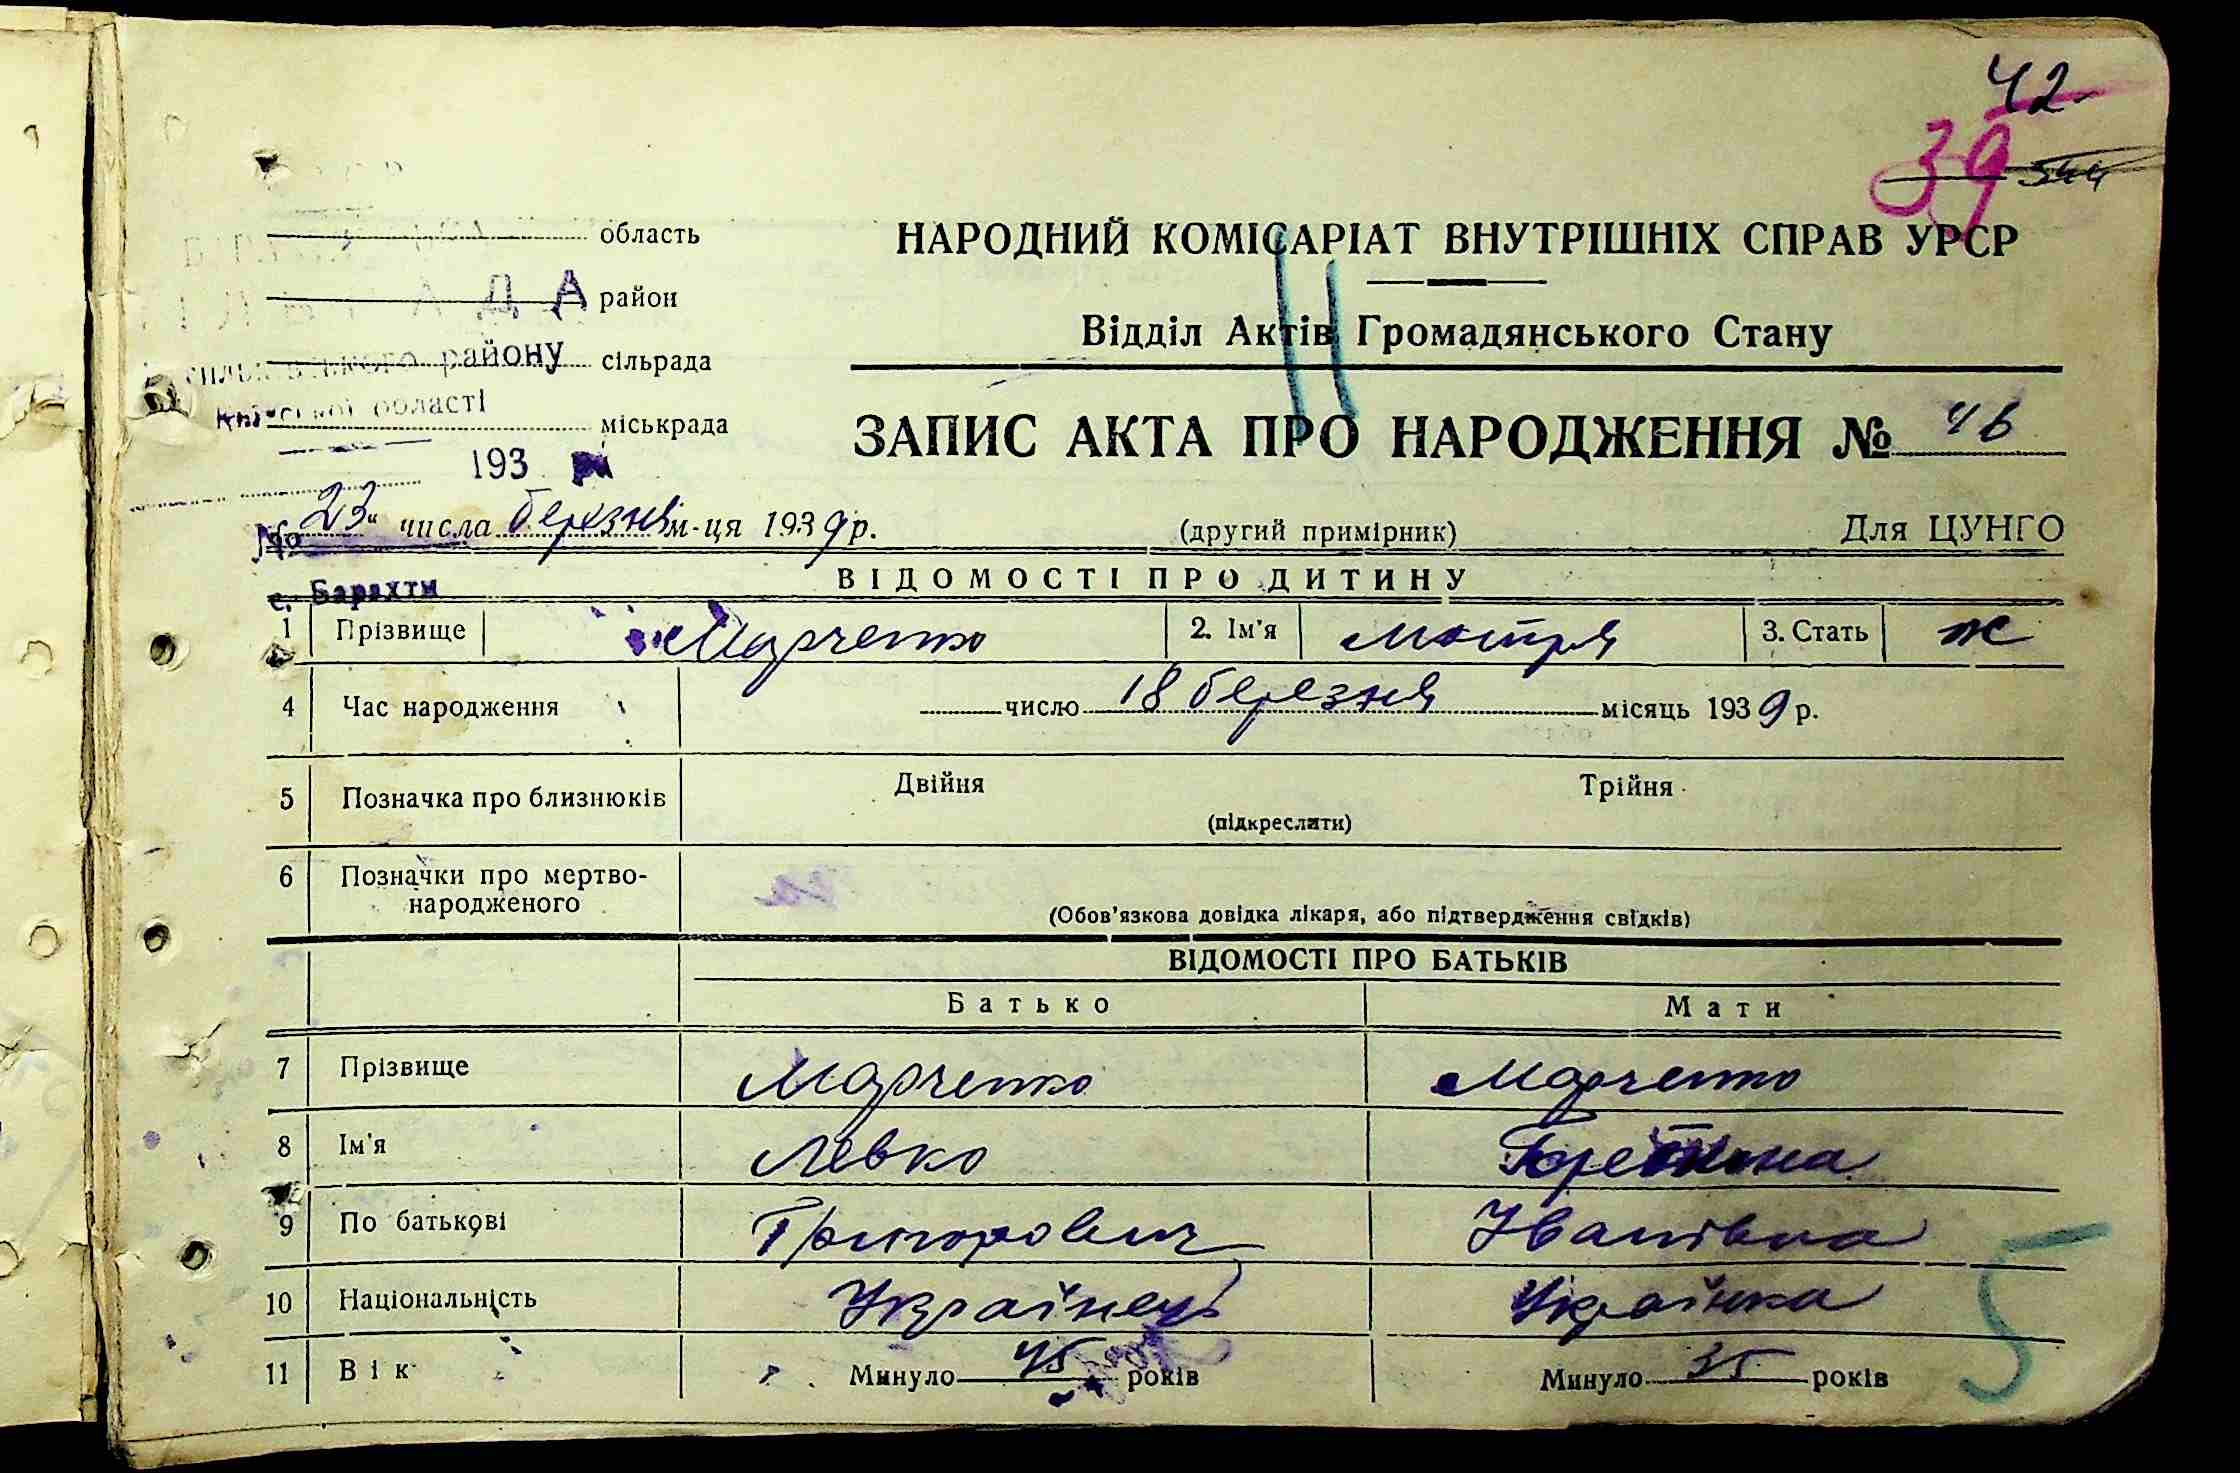 42
39
область
район
Д А
району сільрада
області
міськрада
НАРОДНИЙ КОМІСАРІАТ ВНУТРІШНІХ СПРАВ УРСР
Відділ Актів Громадянського Стану
ЗАПИС АКТА ПРО НАРОДЖЕННЯ №
193
№
23" числа березня м-ця 1939 р.
(другий примірник)
Для ЦУНГО
с. Барахти
ВІДОМОСТІ ПРО ДИТИНУ
1 Прізвище Марченко 2. Ім'я Мотря 3. Стать ж
4 Час народження число 18 березня місяць 1939 р.
5 Позначка про близнюків Двійня Трійня
(підкреслити)
6 Позначки про мертво-
народженого
(Обов'язкова довідка лікаря, або підтвердження свідків)
ВІДОМОСТІ ПРО БАТЬКІВ
Батько Мати
7 Прізвище Марченко Марченко
8 Ім'я Левко
9 По батькові Григорович Іванівна
10 Національність Українець Українка
11 Вік Минуло 45 років Минуло 35 років
5